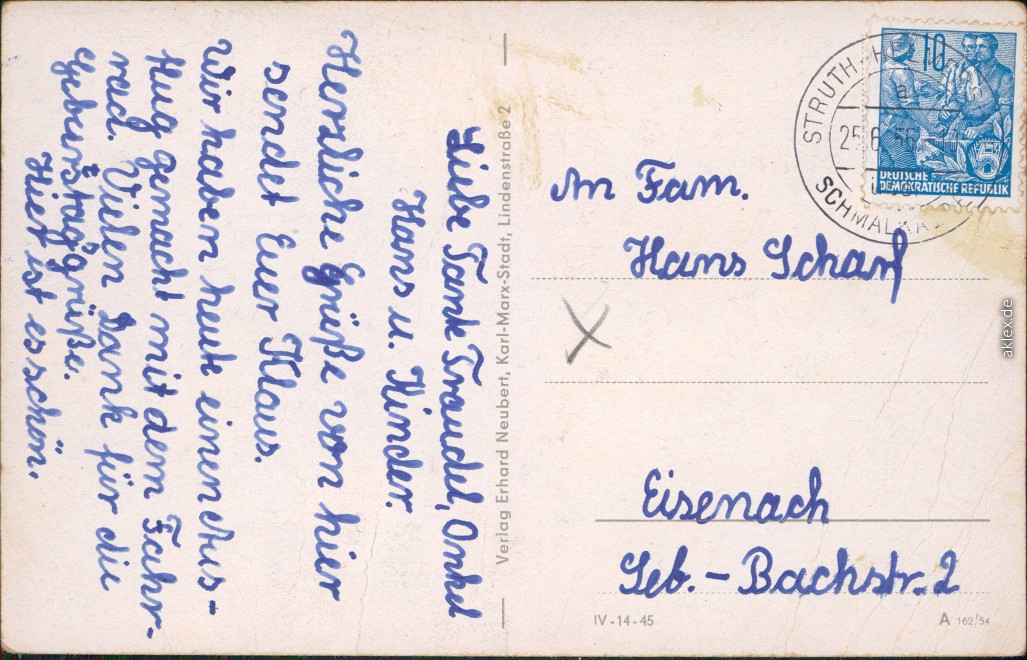 Liebe Tante Traudel, Onkel
Hans u. Kinder.
Herzliche Grüße von hier
sendet Euer Klaus.
Wir haben heute einen Aus-
flug gemacht mit dem Fahr-
rad. Vielen Dank für die
Geburstagsgrüße.
Hier ist es schön.
Verlag Erhard Neubert, Karl-Marx-Stadt, Lindenstraße 2
An Fam.
Hans Scharf
Eisenach
Seb.-Bachstr. 2
IV-14-45
A 162/54
10
5
DEUTSCHE
DEMOKRATISCHE REPUBLIK
STRUTH-HE
a
25.6.56
SCHMALKA
aklex.de